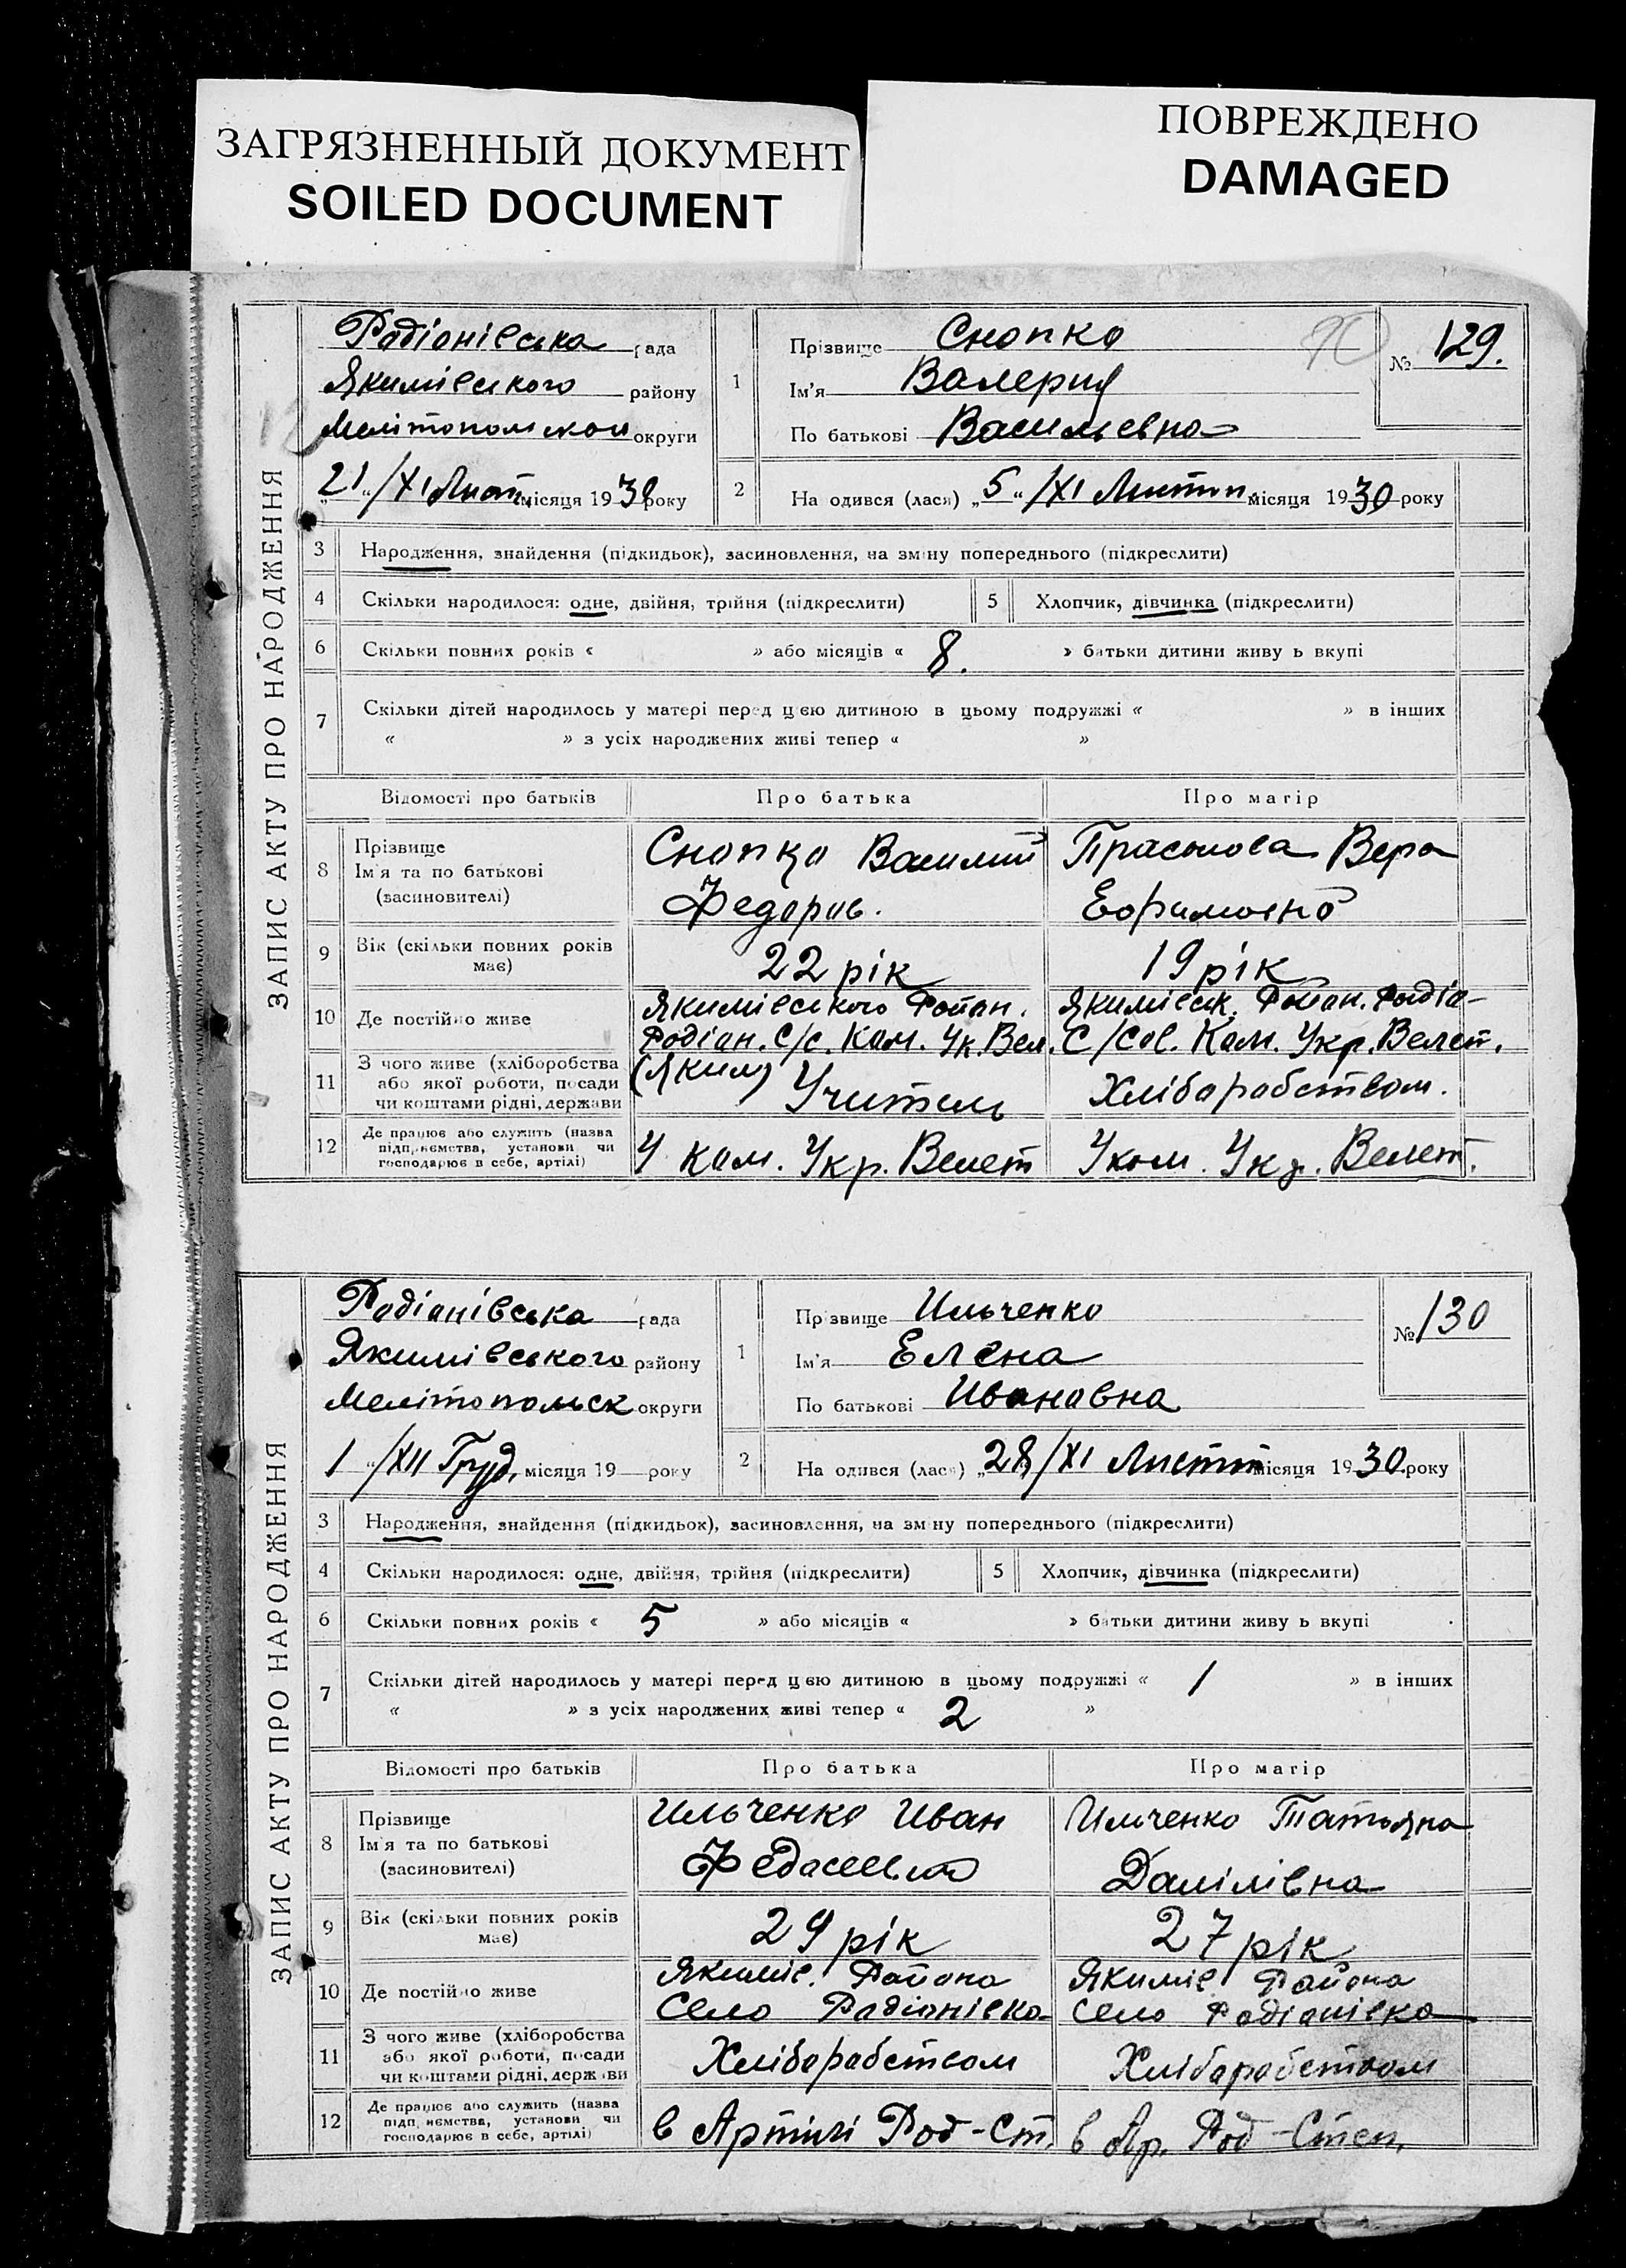 ЗАГРЯЗНЕННЫЙ ДОКУМЕНТ
SOILED DOCUMENT
ПОВРЕЖДЕНО
DAMAGED
ЗАПИС АКТУ ПРО НАРОДЖЕННЯ
Радіонівська рада
Якимівського району
Мелітопольскои округи
21/XI Лист. місяця 1930 року
1
Прізвище Снопко
Ім'я Валерия
По батькові Васильевна
№ 129.
2
На одився (лася) „5“/XI Листоп. місяця 1930 року
3 Народження, знайдення (підкидьок), засиновлення, на зміну попереднього (підкреслити)
4 Скільки народилося: одне, двійня, трійня (підкреслити)
5 Хлопчик, дівчинка (підкреслити)
6 Скільки повних років « » або місяців « 8. » батьки дитини живу ь вкупі
7 Скільки дітей народилось у матері перед цією дитиною в цьому подружжі « » в інших
« » з усіх народжених живі тепер « »
Відомості про батьків
Про батька
Про матір
8 Прізвище
Ім'я та по батькові
(засиновителі)
Снопко Василий
Федоров.
Прасолова Вера
Ефимовна
9 Вік (скільки повних років
має)
22 рік
19 рік
10 Де постійно живе
Якимівського Район.
Родіан. С/с. Ком. Ук. Вел.
Якимівск. Район. Радіо-
С/Сов. Ком. Укр. Велет.
11 З чого живе (хліборобства
або якої роботи, посади
чи коштами рідні, держави
(Яким) Учитель
Хліборобством.
12 Де працює або служить (назва
підприємства, установи чи
господарює в себе, артілі)
У Ком. Укр. Велет
У ком. Укр. Велет.
ЗАПИС АКТУ ПРО НАРОДЖЕННЯ
Радіонівська рада
Якимівського району
Мелітопольск округи
1“/XII Груд. місяця 19 року
1
Прізвище Ильченко
Ім'я Елена
По батькові Ивановна
№ 130
2
На одився (лася) „28/XI Листоп місяця 1930 року
3 Народження, знайдення (підкидьок), засиновлення, на зміну попереднього (підкреслити)
4 Скільки народилося: одне, двійня, трійня (підкреслити)
5 Хлопчик, дівчинка (підкреслити)
6 Скільки повних років « 5 » або місяців « » батьки дитини живу ь вкупі
7 Скільки дітей народилось у матері перед цією дитиною в цьому подружжі « 1 » в інших
« » з усіх народжених живі тепер « 2 »
Відомості про батьків
Про батька
Про матір
8 Прізвище
Ім'я та по батькові
(засиновителі)
Ильченко Иван
Ильченко Татьяна
Данілівна
9 Вік (скільки повних років
має)
29 рік
27 рік
10 Де постійно живе
Якимів. Района
Село Радіонівка
Якимів. Района
Село Радіонівка
11 З чого живе (хліборобства
або якої роботи, посади
чи коштами рідні, держави
Хліборобством
Хліборобством
12 Де працює або служить (назва
підприємства, установи чи
господарює в себе, артілі)
в Артилі Род-Ст.
в Ар. Род-Степ.